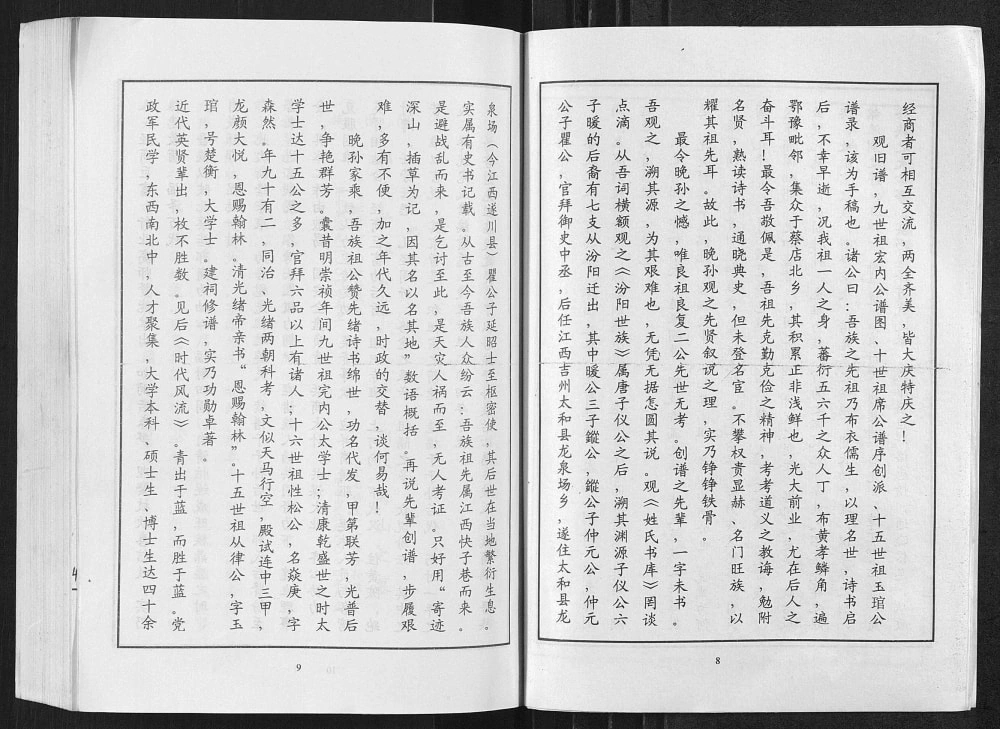 经商者可相互交流，两全齐美，皆大庆特庆之！
观旧谱，九世祖宏内公谱图、十世祖席公谱序创派、十五世祖玉琯公
谱录，该为手稿也。诸公曰：吾族之先祖乃布衣儒生，以理名世，诗书启
后，不幸早逝，况我祖一人之身，蕃衍五六千之众人丁，布黄孝鳞角，遍
鄂豫毗邻，集众于蔡店北乡，其积累正非浅鲜也，光大前业，尤在后人之
奋斗耳！最令吾敬佩是，吾祖先克勤克俭之精神，考考道义之教诲，勉附
名贤，熟读诗书，通晓典史，但未登名宦。不攀权贵显赫、名门旺族，以
耀其祖先耳。故此，晚孙观之先贤叙说之理，实乃铮铮铁骨。
最令晚孙之憾，唯良祖良复二公先世无考。创谱之先辈，一字未书。
吾观之，溯其源，为其艰难也，无凭无据怎圆其说。观《姓氏书库》罔谈
点滴。从吾词横额观之《汾阳世族》属唐子仪公之后，溯其渊源子仪公六
子暧的后裔有七支从汾阳迁出，其中暧公三子鏦公，鏦公子仲元公，仲元
公子瞿公，官拜御史中丞，后任江西吉州太和县龙泉场乡，遂住太和县龙
8
泉场（今江西遂川县）瞿公子延昭士至枢密使，其后世在当地繁衍生息。
实属有史书记载。从古至今吾族人众纷云：吾族祖先属江西快子巷而来。
是避战乱而来，是乞讨至此，是天灾人祸而至，无人考证。只好用“寄迹
深山，插草为记，因其名以名其地”数语概括。再说先辈创谱，步履艰
难，多有不便，加之年代久远，时政的交替，谈何易哉！
晚孙家乘，吾族祖公赞先绪诗书绵世，功名代发，甲第联芳，光普后
世，争艳群芳。囊昔明崇祯年间九世祖完内公太学士；清康乾盛世之时太
学士达十五公之多，官拜六品以上有诸人；十六世祖性松公，名焱庚，字
森然。年九十有二，同治、光绪两朝科考，文似天马行空，殿试连中三甲，
龙颜大悦，恩赐翰林。清光绪帝亲书“恩赐翰林”。十五世祖从律公，字玉
琯，号楚衡，大学士。建祠修谱，实乃功勋卓著。
近代英贤辈出，枚不胜数。见后《时代风流》。青出于蓝，而胜于蓝。党
政军民学，东西南北中，人才聚集，大学本科、硕士生、博士生达四十余
9